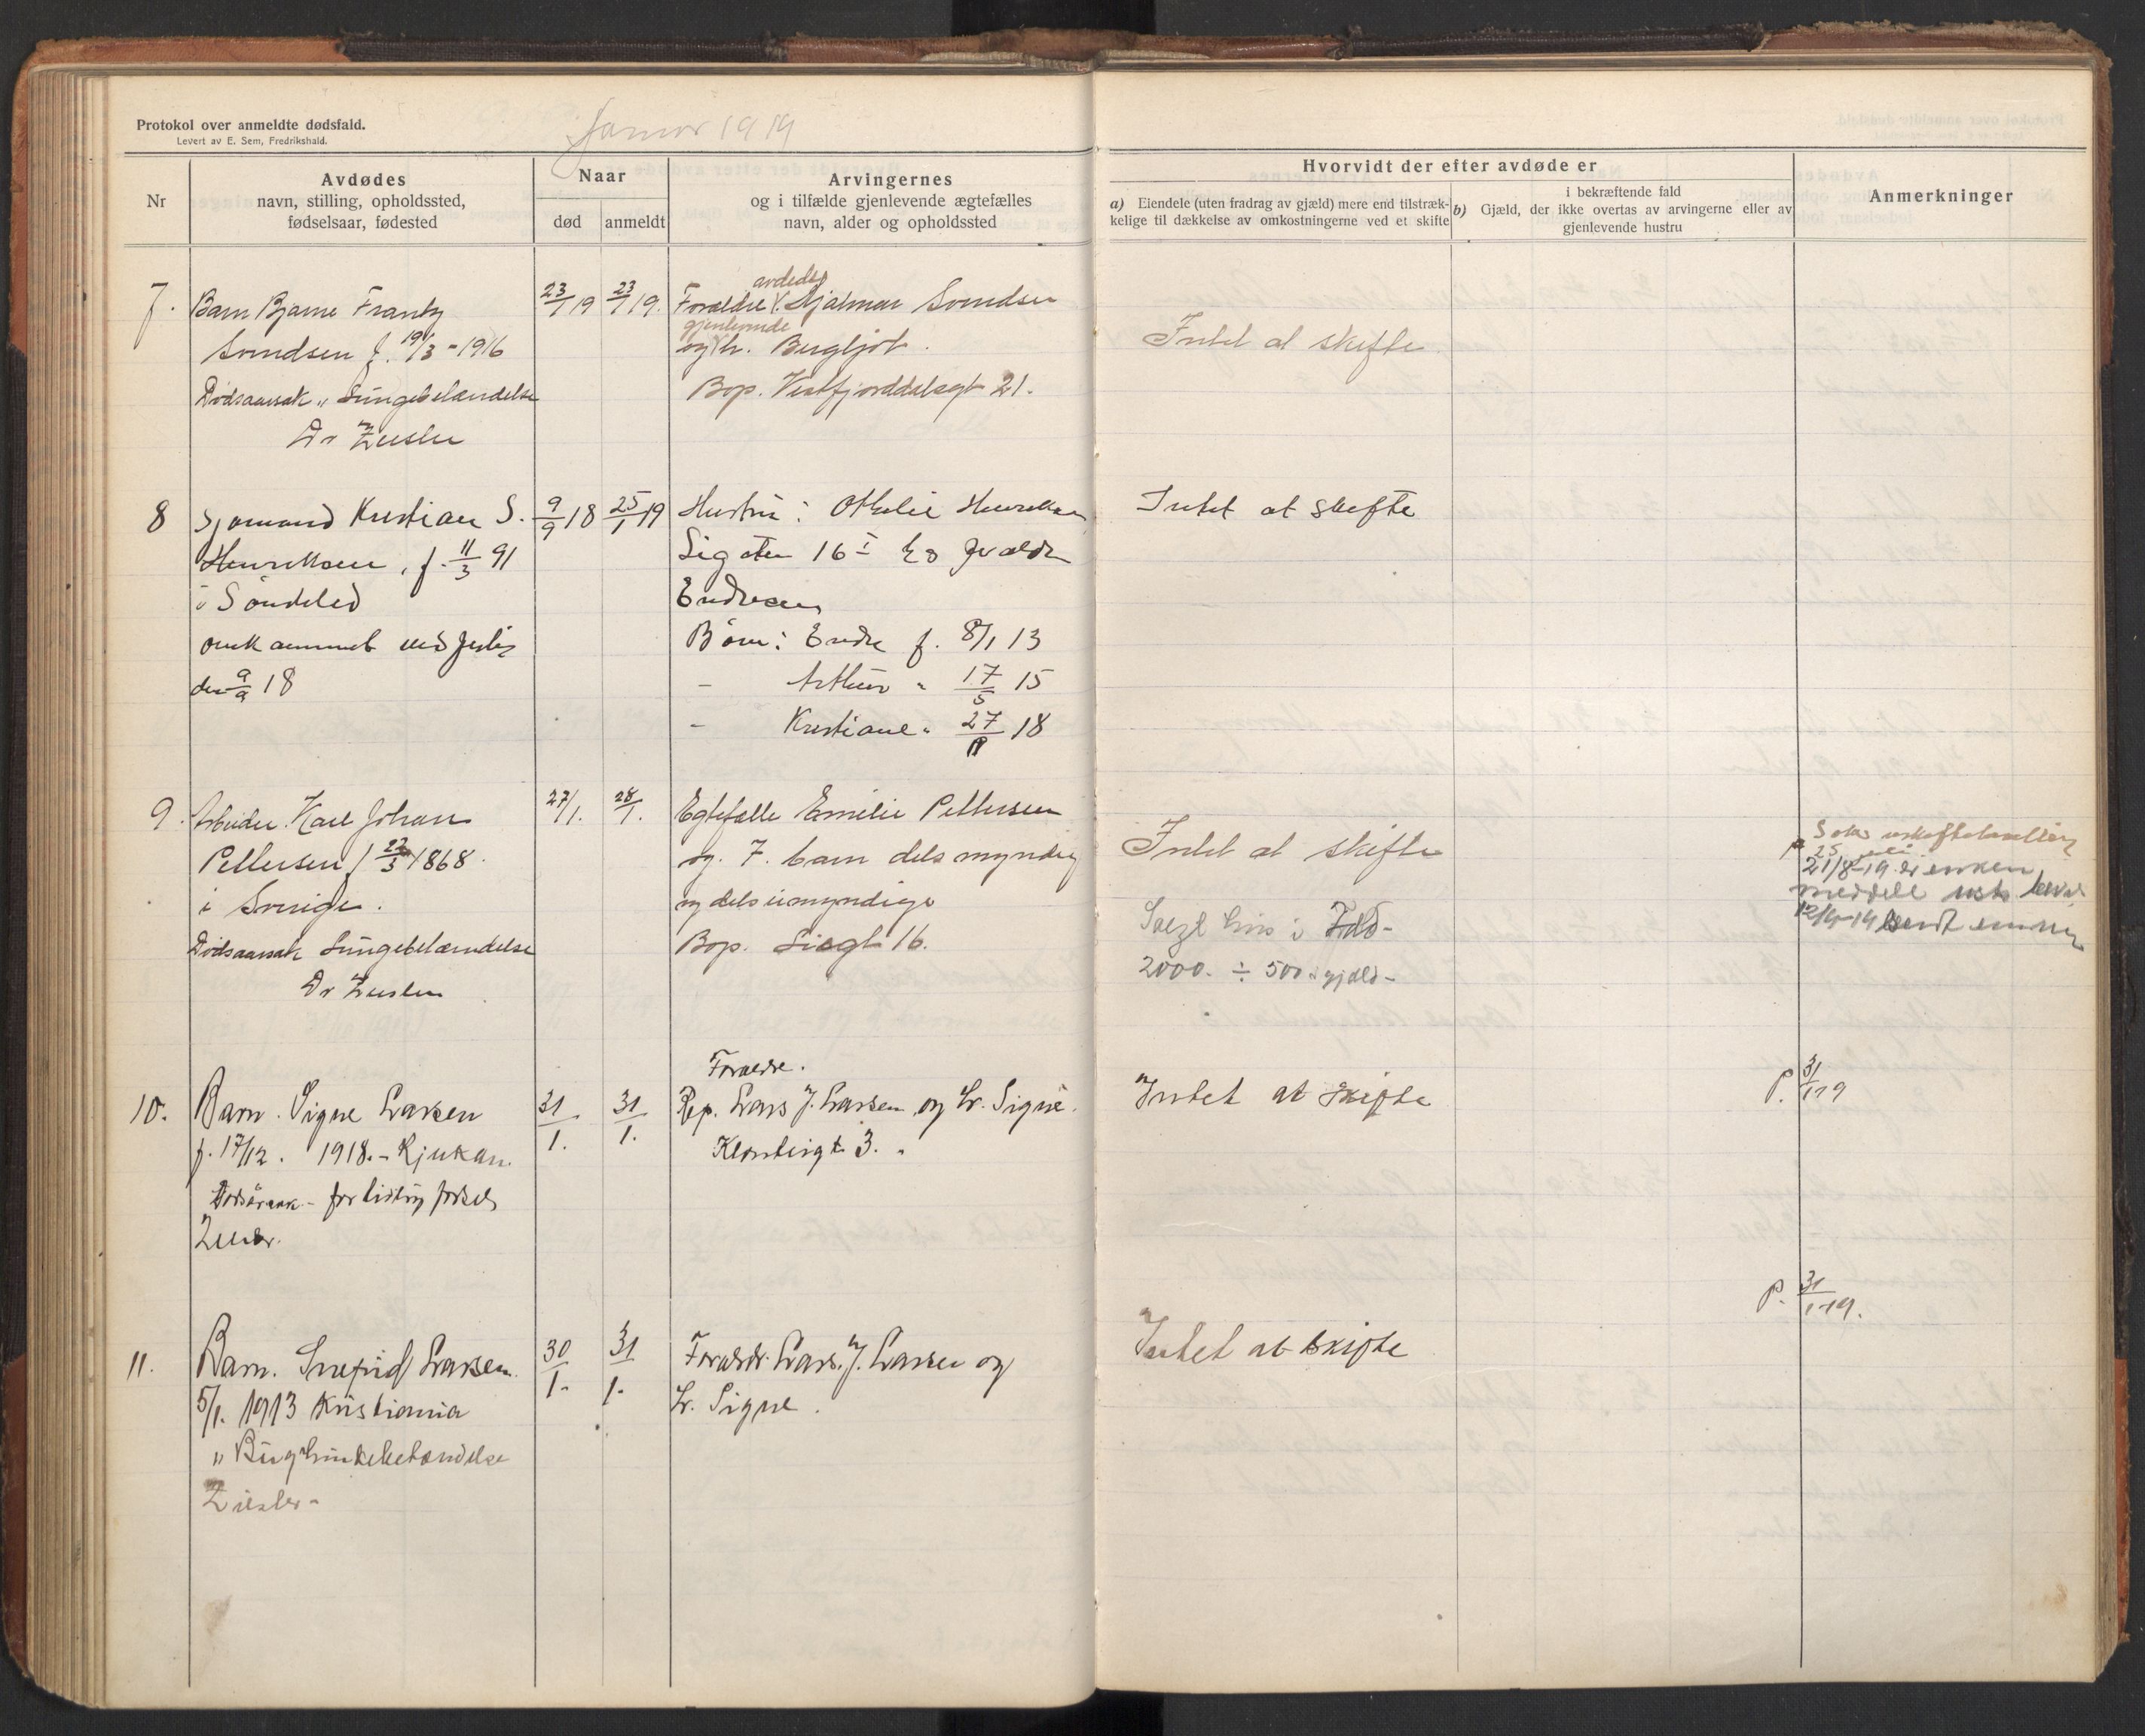 Protokol over anmeldte dødsfald.
Levert av E. Sem, Fredrikshald.
Januar 1919
Nr
Avdødes
navn, stilling, opholdssted,
fødselsaar, fødested
Naar
død
anmeldt
Arvingernes
og i tilfælde gjenlevende ægtefælles
navn, alder og opholdssted
Hvorvidt der efter avdøde er
a) Eiendele (uten fradrag av gjæld) mere end tilstræk-
kelige til dækkelse av omkostningerne ved et skifte
i bekræftende fald
b) Gjæld, der ikke overtas av arvingerne eller av
gjenlevende hustru
Anmerkninger
7. Barn Bjarne Frantz
Svendsen f. 19/3 - 1916
Dødsaarsak „ Lungebetændelse
Dr Zeisler
23/1 19
23/1 19.
avdøde
Forældre Hjalmar Svendsen
gjenlevende
og h. Bergljot.
Bop. Vestfjorddalsgt 21.
Intet at skifte
8 Sjømand Kristian S.
Henriksen, f. 11/3 91
i Søndeled
omkommet ved
den 9/9 18
9/9 18
25/1 19
Hustru: Othelie Henriksen
Ligaten 16 I
Endresen
Børn: Endre f. 8/1 13
- Arthur " 17/5 15
- Kristiane " 27/ 18
Intet at skifte
9. Arbeider Karl Johan
Pettersen f 23/3 1868.
i Sverige.
Dødsaarsak Lungebetændelse
Dr Zeisler
27/1.
28/1.
Egtefælle Emilie Pettersen
og 7. barn dels myndig
og dels umyndige
Bop. Liagt 16.
Intet at skifte
hus i
2000. ÷ 500 i gjæld -
21/8-19 er enken
meddelt
10. Barn. Signe Larsen
f. 17/12. 1918. - Rjukan.
Dødsårsak - for tidlig fødsel
31/1.
31/1.
Forældre.
Rep. Lars J. Larsen og h. Signe.
3.
Intet at skifte
P. 31/1 19
11. Barn. Larsen.
5/1. 1913 Kristiania
„ Bughindebetændelse
Zeisler -
30/1-
31/1-
Forældr. Lars. J. Larsen og
h. Signe.
Intet at skifte
P. 31/1-19.